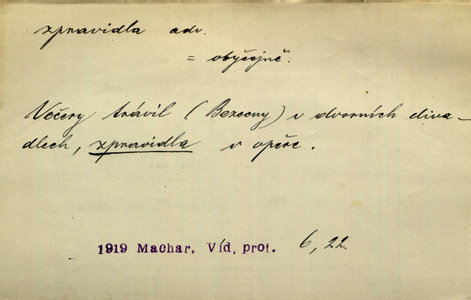 zpravidla adv.
= obyčejně.
Večery trávil (Bezecny) v dvorních diva-
dlech, zpravidla v opěře.
1919 Machar, Víd, prot. 6, 22.